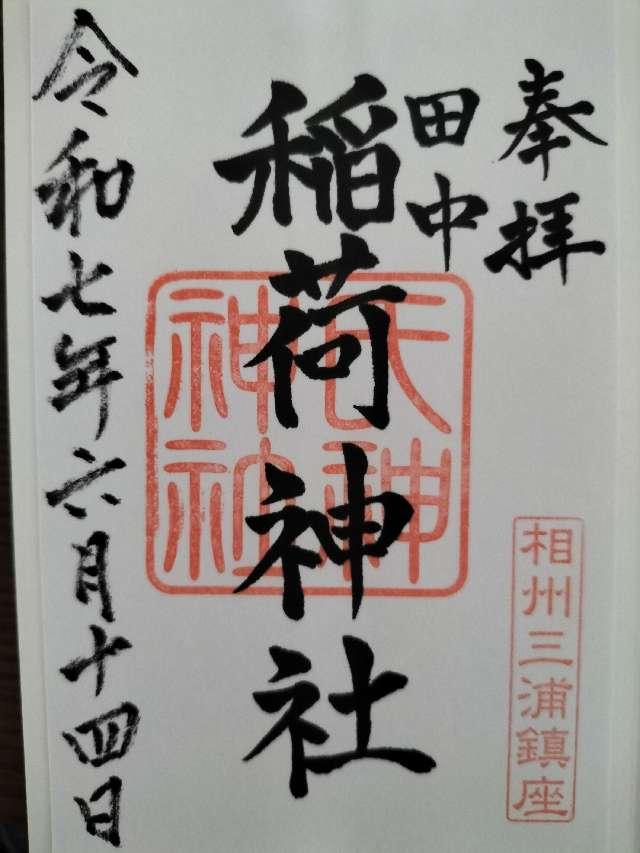 奉拝
田中
稲荷神社
氏神
神社
相州三浦鎮座
令和七年六月十四日